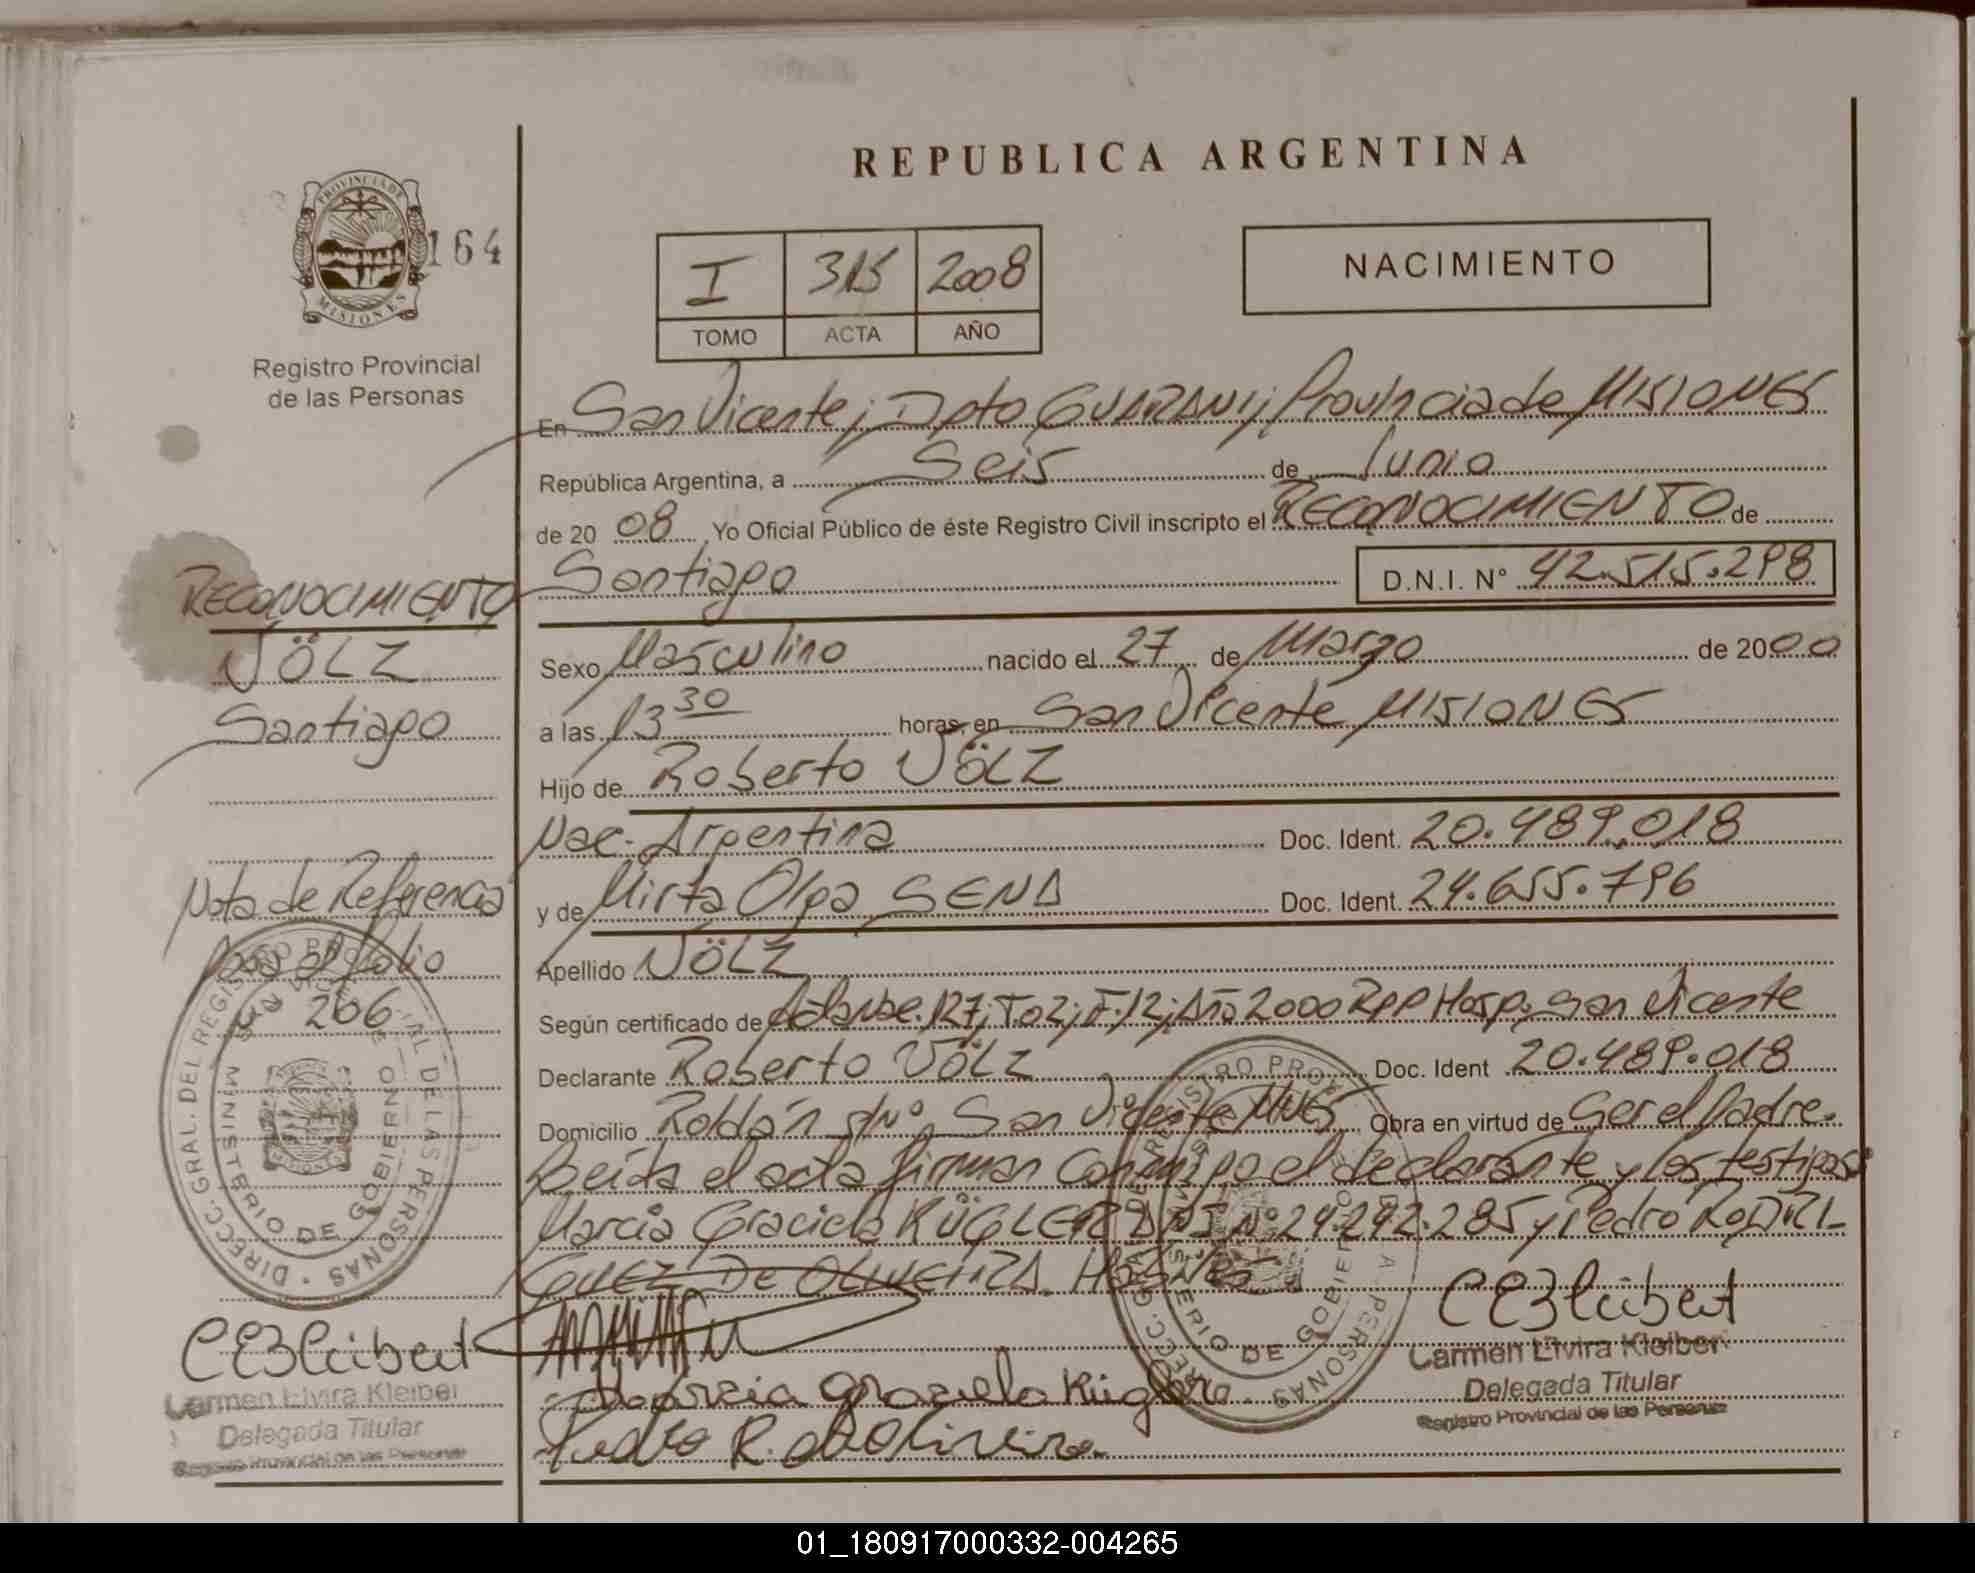 REPUBLICA ARGENTINA
PROVINCIA DE
MISIONES
164
Registro Provincial
de las Personas
I 315 2008
TOMO ACTA AÑO
NACIMIENTO
En San Vicente; Dpto GUARANI; Provincia de MISIONES
República Argentina, a Seis de Junio
de 20 08 Yo Oficial Público de éste Registro Civil inscripto el RECONOCIMIENTO de
Santiago D.N.I. N° 42.515.298
Sexo Masculino nacido el 27 de Marzo de 2000
a las 13 30 horas, en San Vicente MISIONES
Hijo de Roberto VÖLZ
Nac. Argentina Doc. Ident. 20.489.018
y de Mirta Olga SENA Doc. Ident. 24.655.796
Apellido VÖLZ
Según certificado de 127; To 2; F. 12; Año 2000 RPP Hosp. San Vicente
Declarante Roberto VÖLZ Doc. Ident 20.489.018
Domicilio Roldán s/N° San Vicente Mnes Obra en virtud de Ser el Padre.
Leída el acta firman conmigo el declarante y los testigos
Marcia Graciela KÜGLER DNI N° 24.292.285 y Pedro RODRI-
GUEZ De OLIVEIRA.
Marcia Graciela Kügler
Pedro R. de Oliveira.
Carmen Elvira Kleiber
Delegada Titular
Registro Provincial de las Personas
RECONOCIMIENTO
VÖLZ
Santiago
Nota de Referencia
Pasa al folio
N° 206
DIRECC. GRAL. DEL REGISTRO PROVINCIAL DE LAS PERSONAS
MINISTERIO DE GOBIERNO
Carmen Elvira Kleiber
Delegada Titular
Registro Provincial de las Personas
01_180917000332-004265